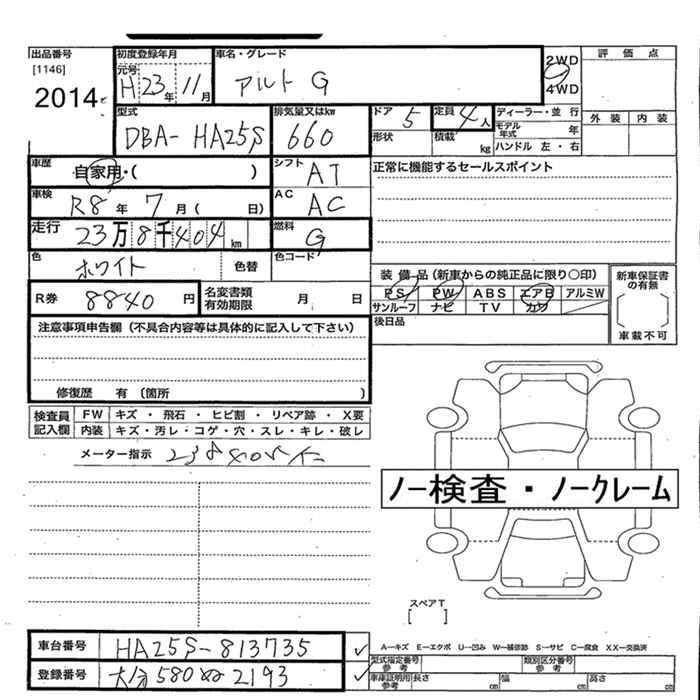 出品番号
[1146]
2014
初度登録年月
元号
H 23年 11月
車名・グレード
アルト G
2WD
4WD
評価点
外装 内装
型式
DBA-HA25S
排気量又はkw
660
ドア 5
形状
定員 4人
積載 kg
ディーラー・並行
モデル年式 年
ハンドル 左・右
車歴
自家用・( )
シフト
AT
正常に機能するセールスポイント
車検
R8年 7月( 日)
AC
AC
走行
23万8千404km
燃料
G
色
ホワイト
色替
色コード
装備品(新車からの純正品に限り〇印)
PS PW ABS エアB アルミW
サンルーフ ナビ TV カワ
新車保証書の有無
車載不可
R券
8840円
名変書類有効期限
月 日
後日品
注意事項申告欄(不具合内容等は具体的に記入して下さい)
修復歴 有 〔箇所 〕
検査員記入欄
FW キズ・飛石・ヒビ割・リペア跡・X要
内装 キズ・汚レ・コゲ・穴・スレ・キレ・破レ
メーター指示
ノー検査・ノークレーム
スペアT
[ ]
車台番号
HA25S-813735
登録番号
大分 580 ぬ 2193
A-キズ E-エクボ U-凹み W-補修跡 S-サビ C-腐食 XX-交換済
型式指定番号
参考
類別区分番号
参考
車庫証明用
参考
長さ cm 幅 cm 高さ cm